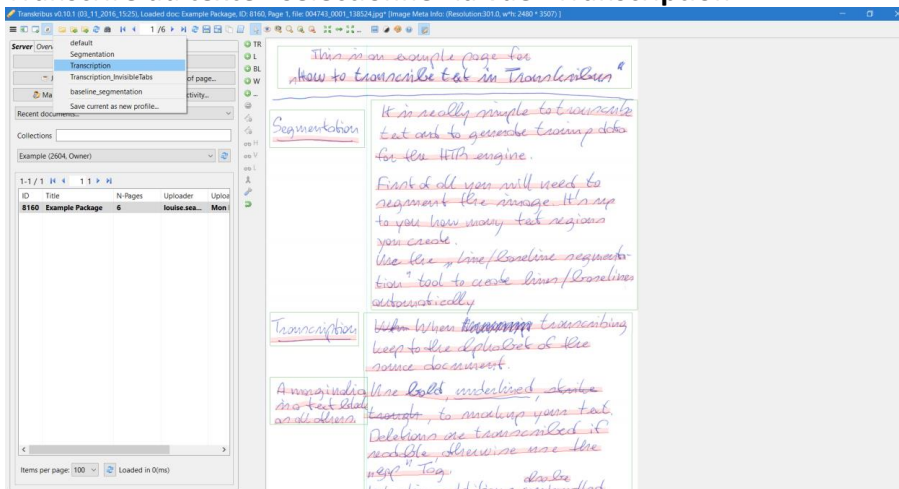 Transkribus v0.10.1 (03_11_2016_15:25), Loaded doc: Example Package, ID: 8160, Page 1, file: 004743_0001_138524.jpg* [Image Meta Info: (Resolution:301.0, w*h: 2480 * 3507) ]
1 /6
default
Segmentation
Transcription
Transcription_InvisibleTabs
baseline_segmentation
Save current as new profile...
Server
of page...
Recent documents...
Collections
Example (2604, Owner)
1-1 / 1
1 1
ID Title N-Pages Uploader Uploa
8160 Example Package 6 louise.sea... Mon
Items per page: 100 Loaded in 0(ms)
TR
L
BL
W
This is an example page for
"How to transcribe text in Transkribus"
Segmentation
It is really simple to transcribe
text and to generate training data
for the HTR engine.
First of all you will need to
segment the image. It's up
to you how many text regions
you create.
Use the "line/baseline segmenta-
tion" tool to create lines/baselines
automatically
Transcription
When When transcribing
keep to the alphabet of the
source document.
A marginalia
is a text
and all others.
Use bold, underlined,
through, to markup your text.
Deletions are transcribed if
readable otherwise use the
"gap" Tag.